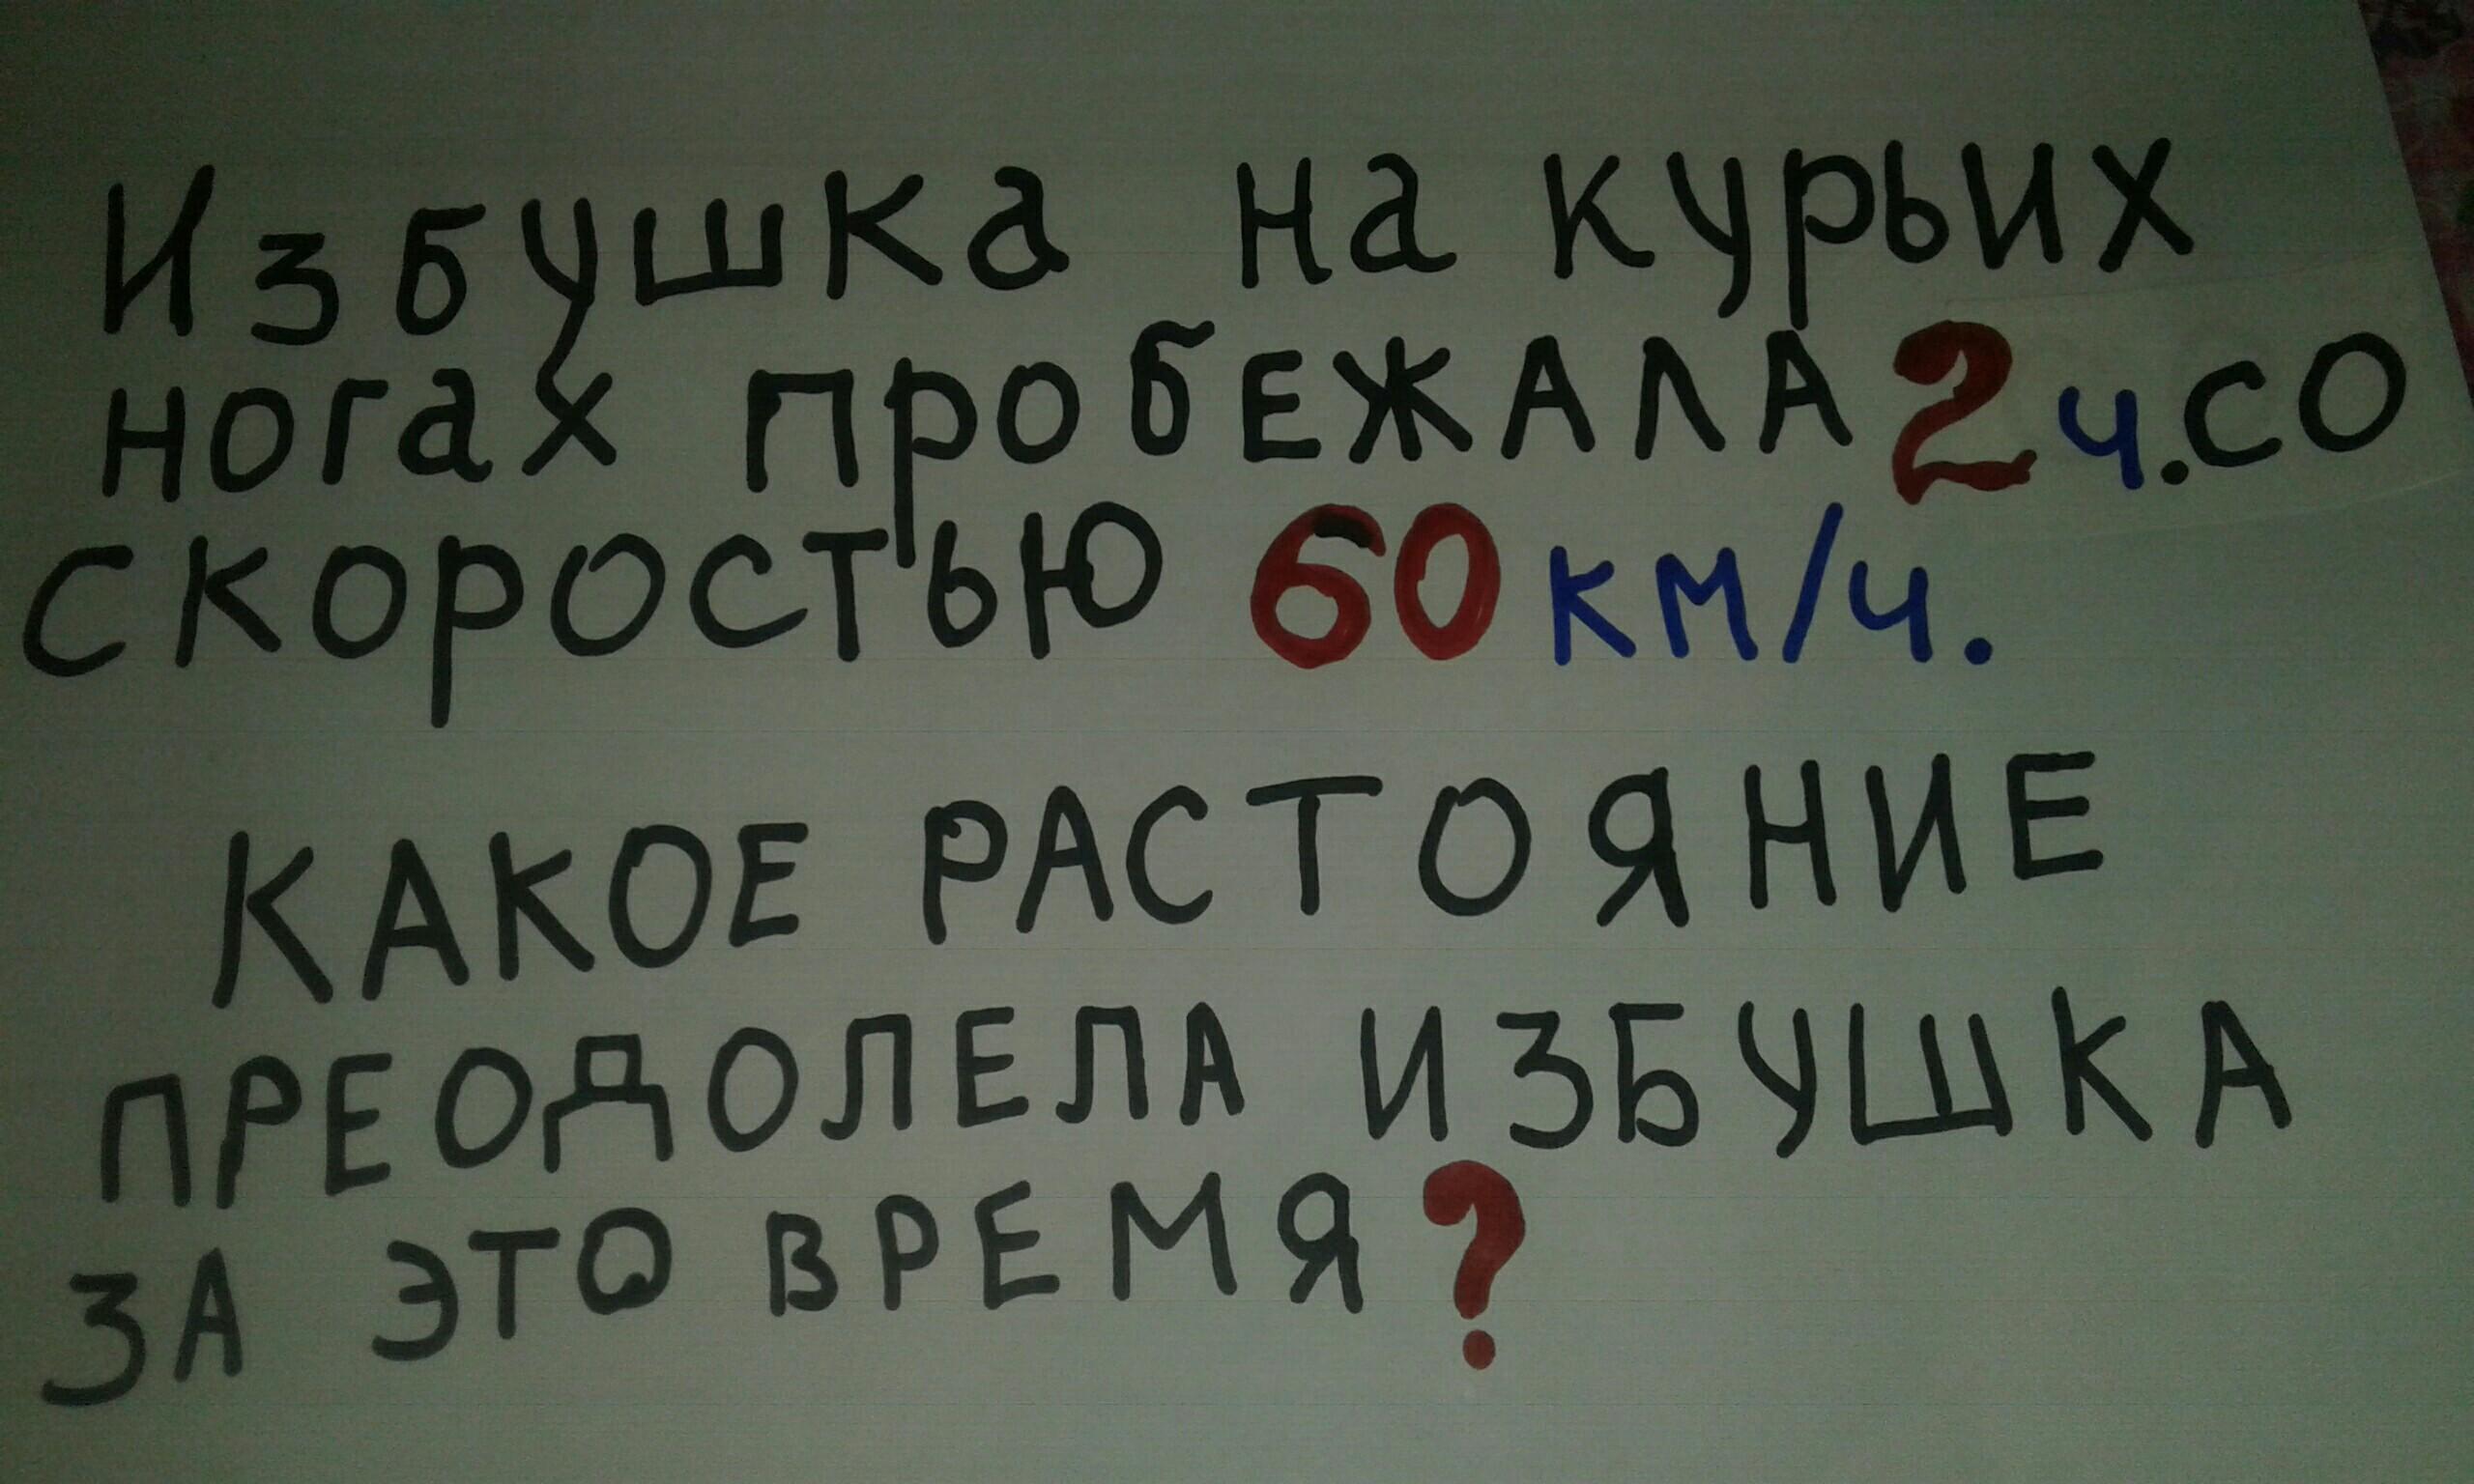 Избушка на курьих
ногах пробЕЖАЛА 2 ч. со
скоростью 60 км/ч.
КАКОЕ РАСТОЯНИЕ
ПРЕОДОЛЕЛА ИЗБУШКА
ЗА ЭТО ВРЕМЯ?